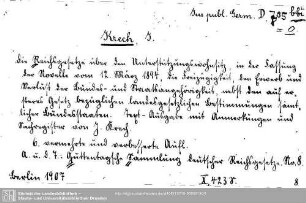 Im publ. Germ. D. 795 bbi
= 0
Krech J.
die Reichsgesetze über den Unterstützungswohnsitz, in der Fassung
der Novelle vom 12. März 1894, die Freizügigkeit, den Erwerb und
Verlust der Bundes- und Staatsangehörigkeit, nebst den auf
Gesetz bezüglichen landesgesetzlichen Bestimmungen sämt-
licher Bundesstaaten. Text-Ausgabe mit Anmerkungen und
Sachregister von J. Krech.
6. vermehrte und verbesserte Aufl.
A. u. d. T.: Guttentag'sche Sammlung deutscher Reichsgesetze. No. 8.
Berlin 1907
I, 423 S.
8